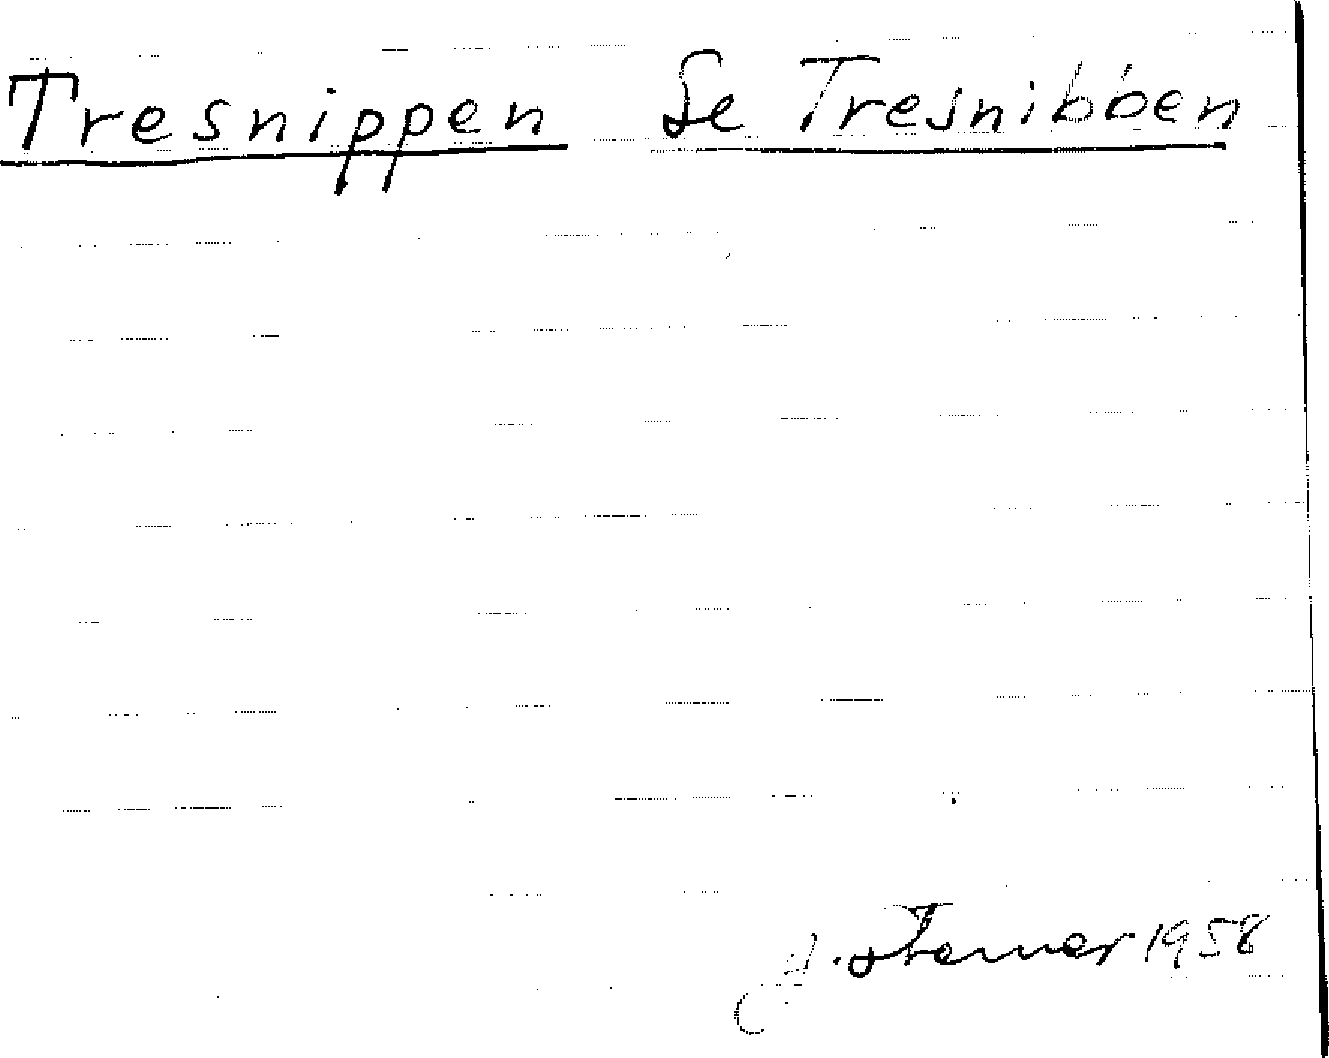 Tresnippen Se Tresnibben
1958